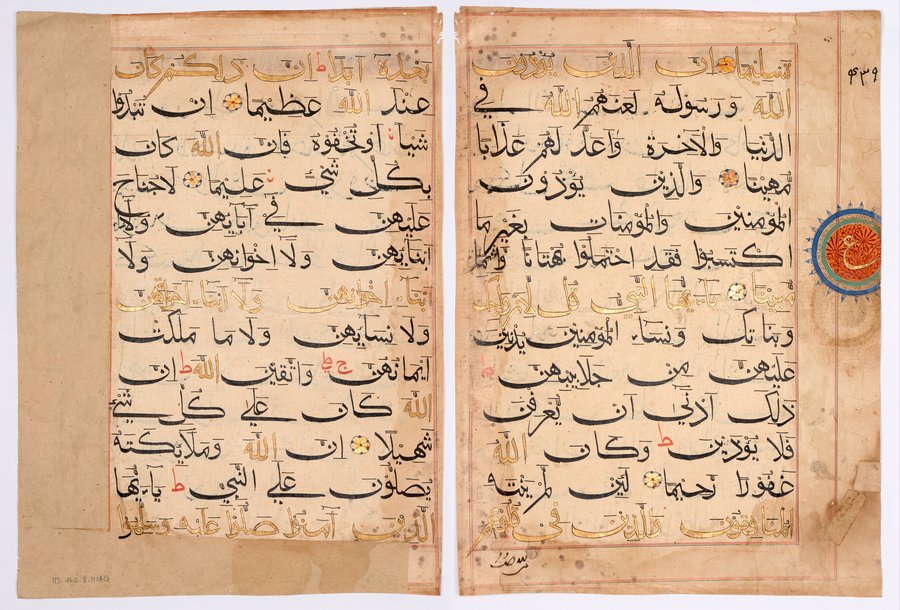 بَعْدِهِ اَبَدًا ط اِنَّ ذٰلِكُمْ كَانَ
عِنْدَ اللّٰهِ عَظِيمًا اِنْ تُبْدُوا
شَيْئًا اَوْ تُخْفُوهُ فَاِنَّ اللّٰهَ كَانَ
بِكُلِّ شَيْءٍ عَلِيمًا لَا جُنَاحَ
عَلَيْهِنَّ فِي آبَائِهِنَّ وَلَا
اَبْنَائِهِنَّ وَلَا اِخْوَانِهِنَّ وَلَا
اَبْنَاءِ اِخْوَانِهِنَّ وَلَا اَبْنَاءِ اَخَوَاتِهِنَّ
وَلَا نِسَائِهِنَّ وَلَا مَا مَلَكَتْ
اَيْمَانُهُنَّ ج وَاتَّقِينَ اللّٰهَ ط اِنَّ
اللّٰهَ كَانَ عَلَى كُلِّ شَيْءٍ
شَهِيدًا اِنَّ اللّٰهَ وَمَلَائِكَتَهُ
يُصَلُّونَ عَلَى النَّبِيِّ ط يَا اَيُّهَا
الَّذِينَ آمَنُوا صَلُّوا عَلَيْهِ وَسَلِّمُوا
تَسْلِيمًا اِنَّ الَّذِينَ يُؤْذُونَ
اللّٰهَ وَرَسُولَهُ لَعَنَهُمُ اللّٰهُ فِي
الدُّنْيَا وَالْآخِرَةِ وَاَعَدَّ لَهُمْ عَذَابًا
مُهِينًا وَالَّذِينَ يُؤْذُونَ
الْمُؤْمِنِينَ وَالْمُؤْمِنَاتِ بِغَيْرِ مَا
اكْتَسَبُوا فَقَدِ احْتَمَلُوا بُهْتَانًا وَاِثْمًا
مُبِينًا يَا اَيُّهَا النَّبِيُّ قُلْ لِاَزْوَاجِكَ
وَبَنَاتِكَ وَنِسَاءِ الْمُؤْمِنِينَ يُدْنِينَ
عَلَيْهِنَّ مِنْ جَلَابِيبِهِنَّ
ذٰلِكَ اَدْنَى اَنْ يُعْرَفْنَ
فَلَا يُؤْذَيْنَ ط وَكَانَ اللّٰهُ
غَفُورًا رَحِيمًا لَئِنْ لَمْ يَنْتَهِ
الْمُنَافِقُونَ وَالَّذِينَ فِي قُلُوبِهِمْ
ع
٤٣٩